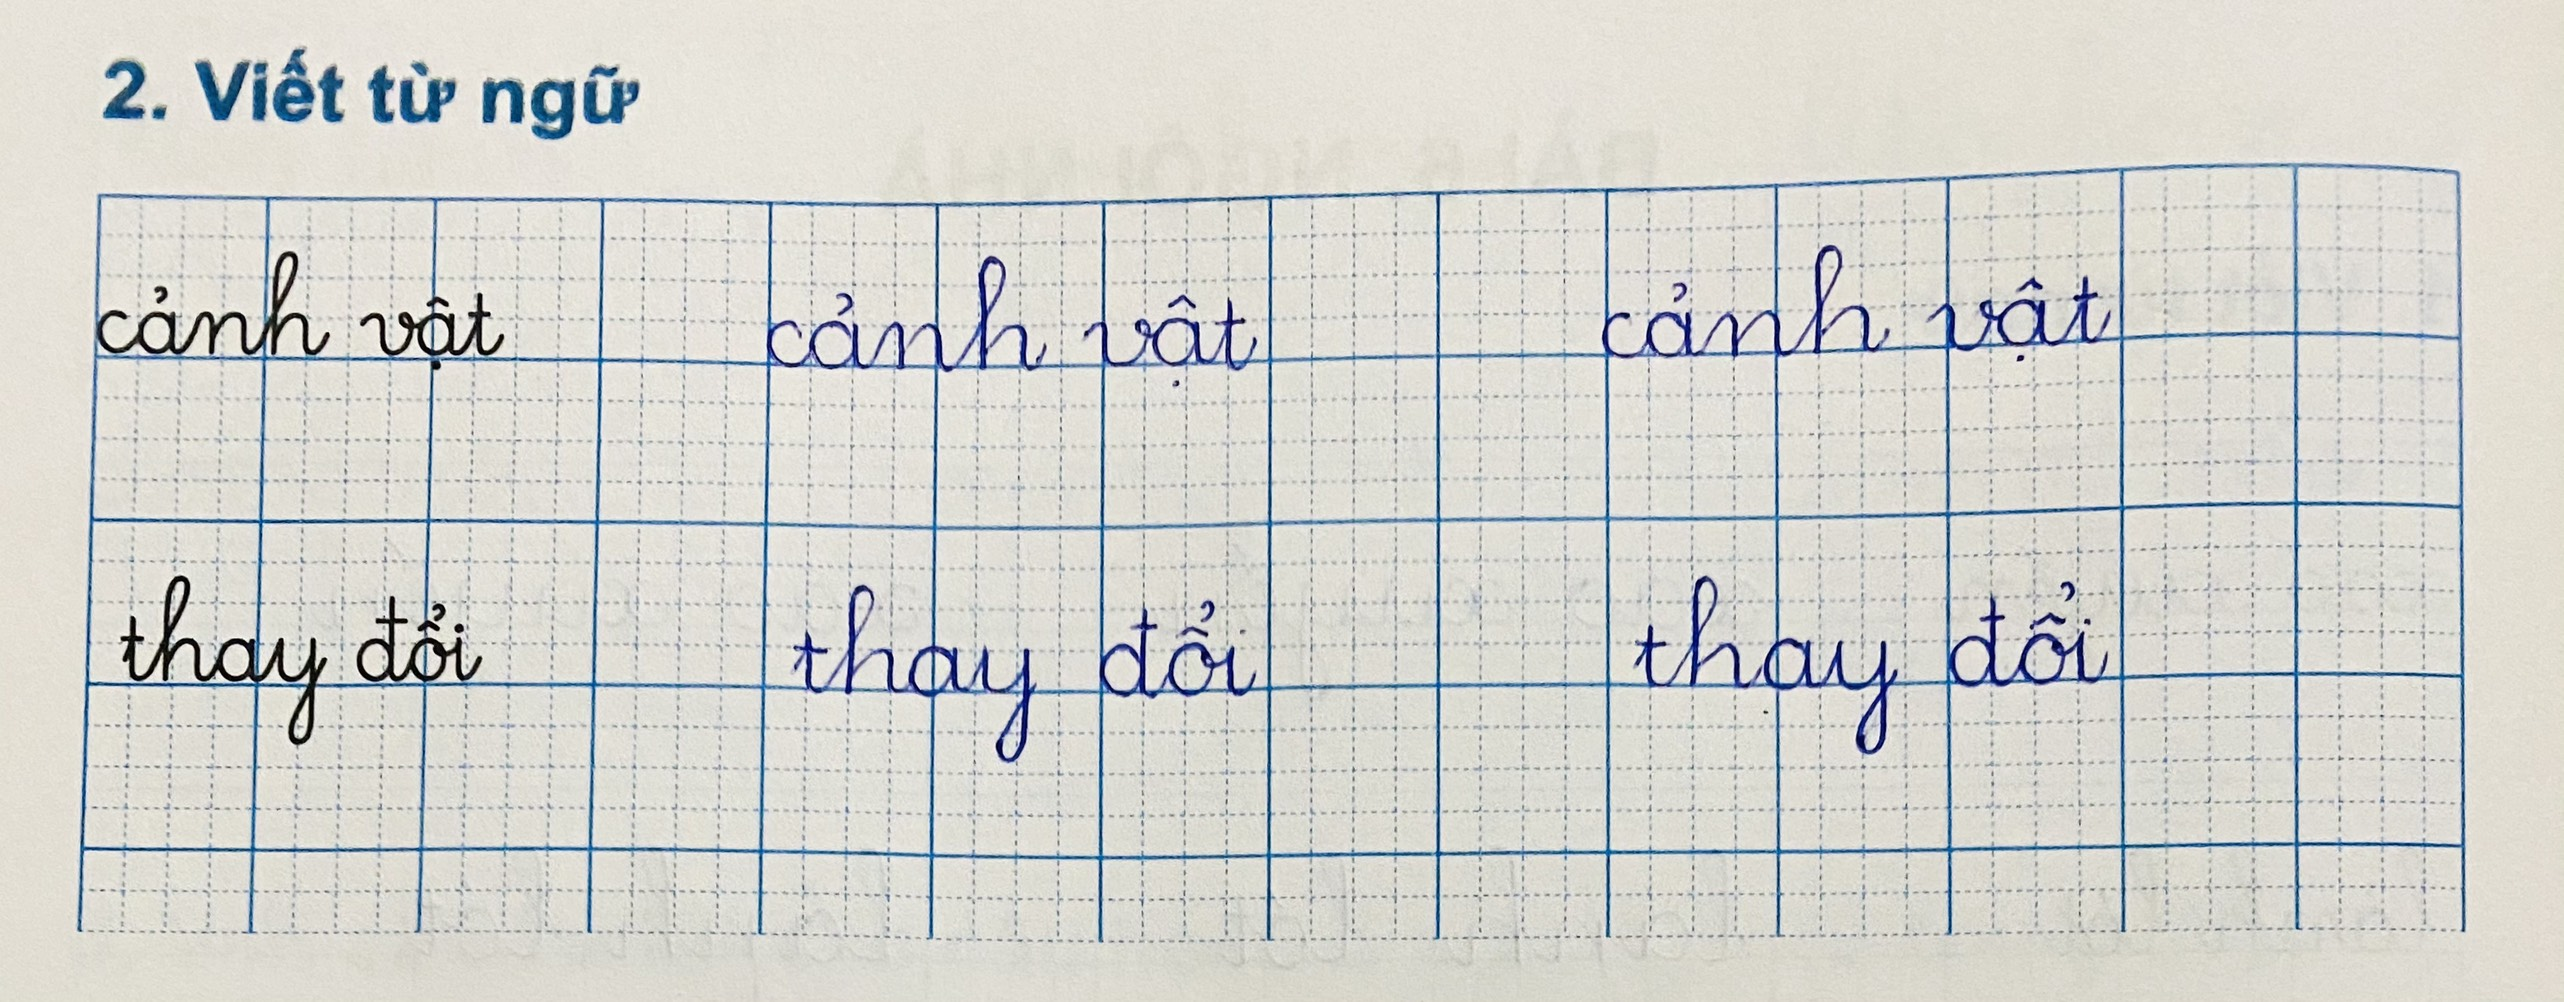 2. Viết từ ngữ
cảnh vật cảnh vật cảnh vật
thay đổi thay đổi thay đổi